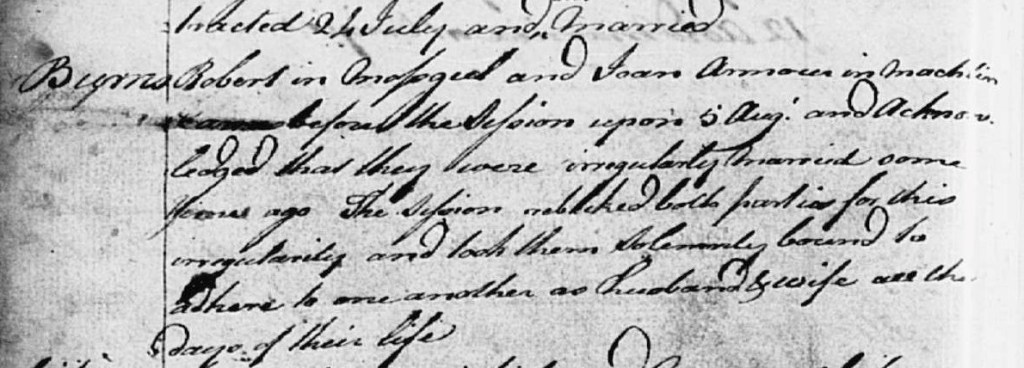 tracted 24 July and Married
Burns Robert in Mossgiel and Jean Armour in Machlin
came before the Session upon 5 Aug: and Acknow
ledged that they were irregularly married some
years ago The Session rebuked both parties for this
irregularity and took them Solemnly bound to
adhere to one another as Husband & wife all the
days of their life